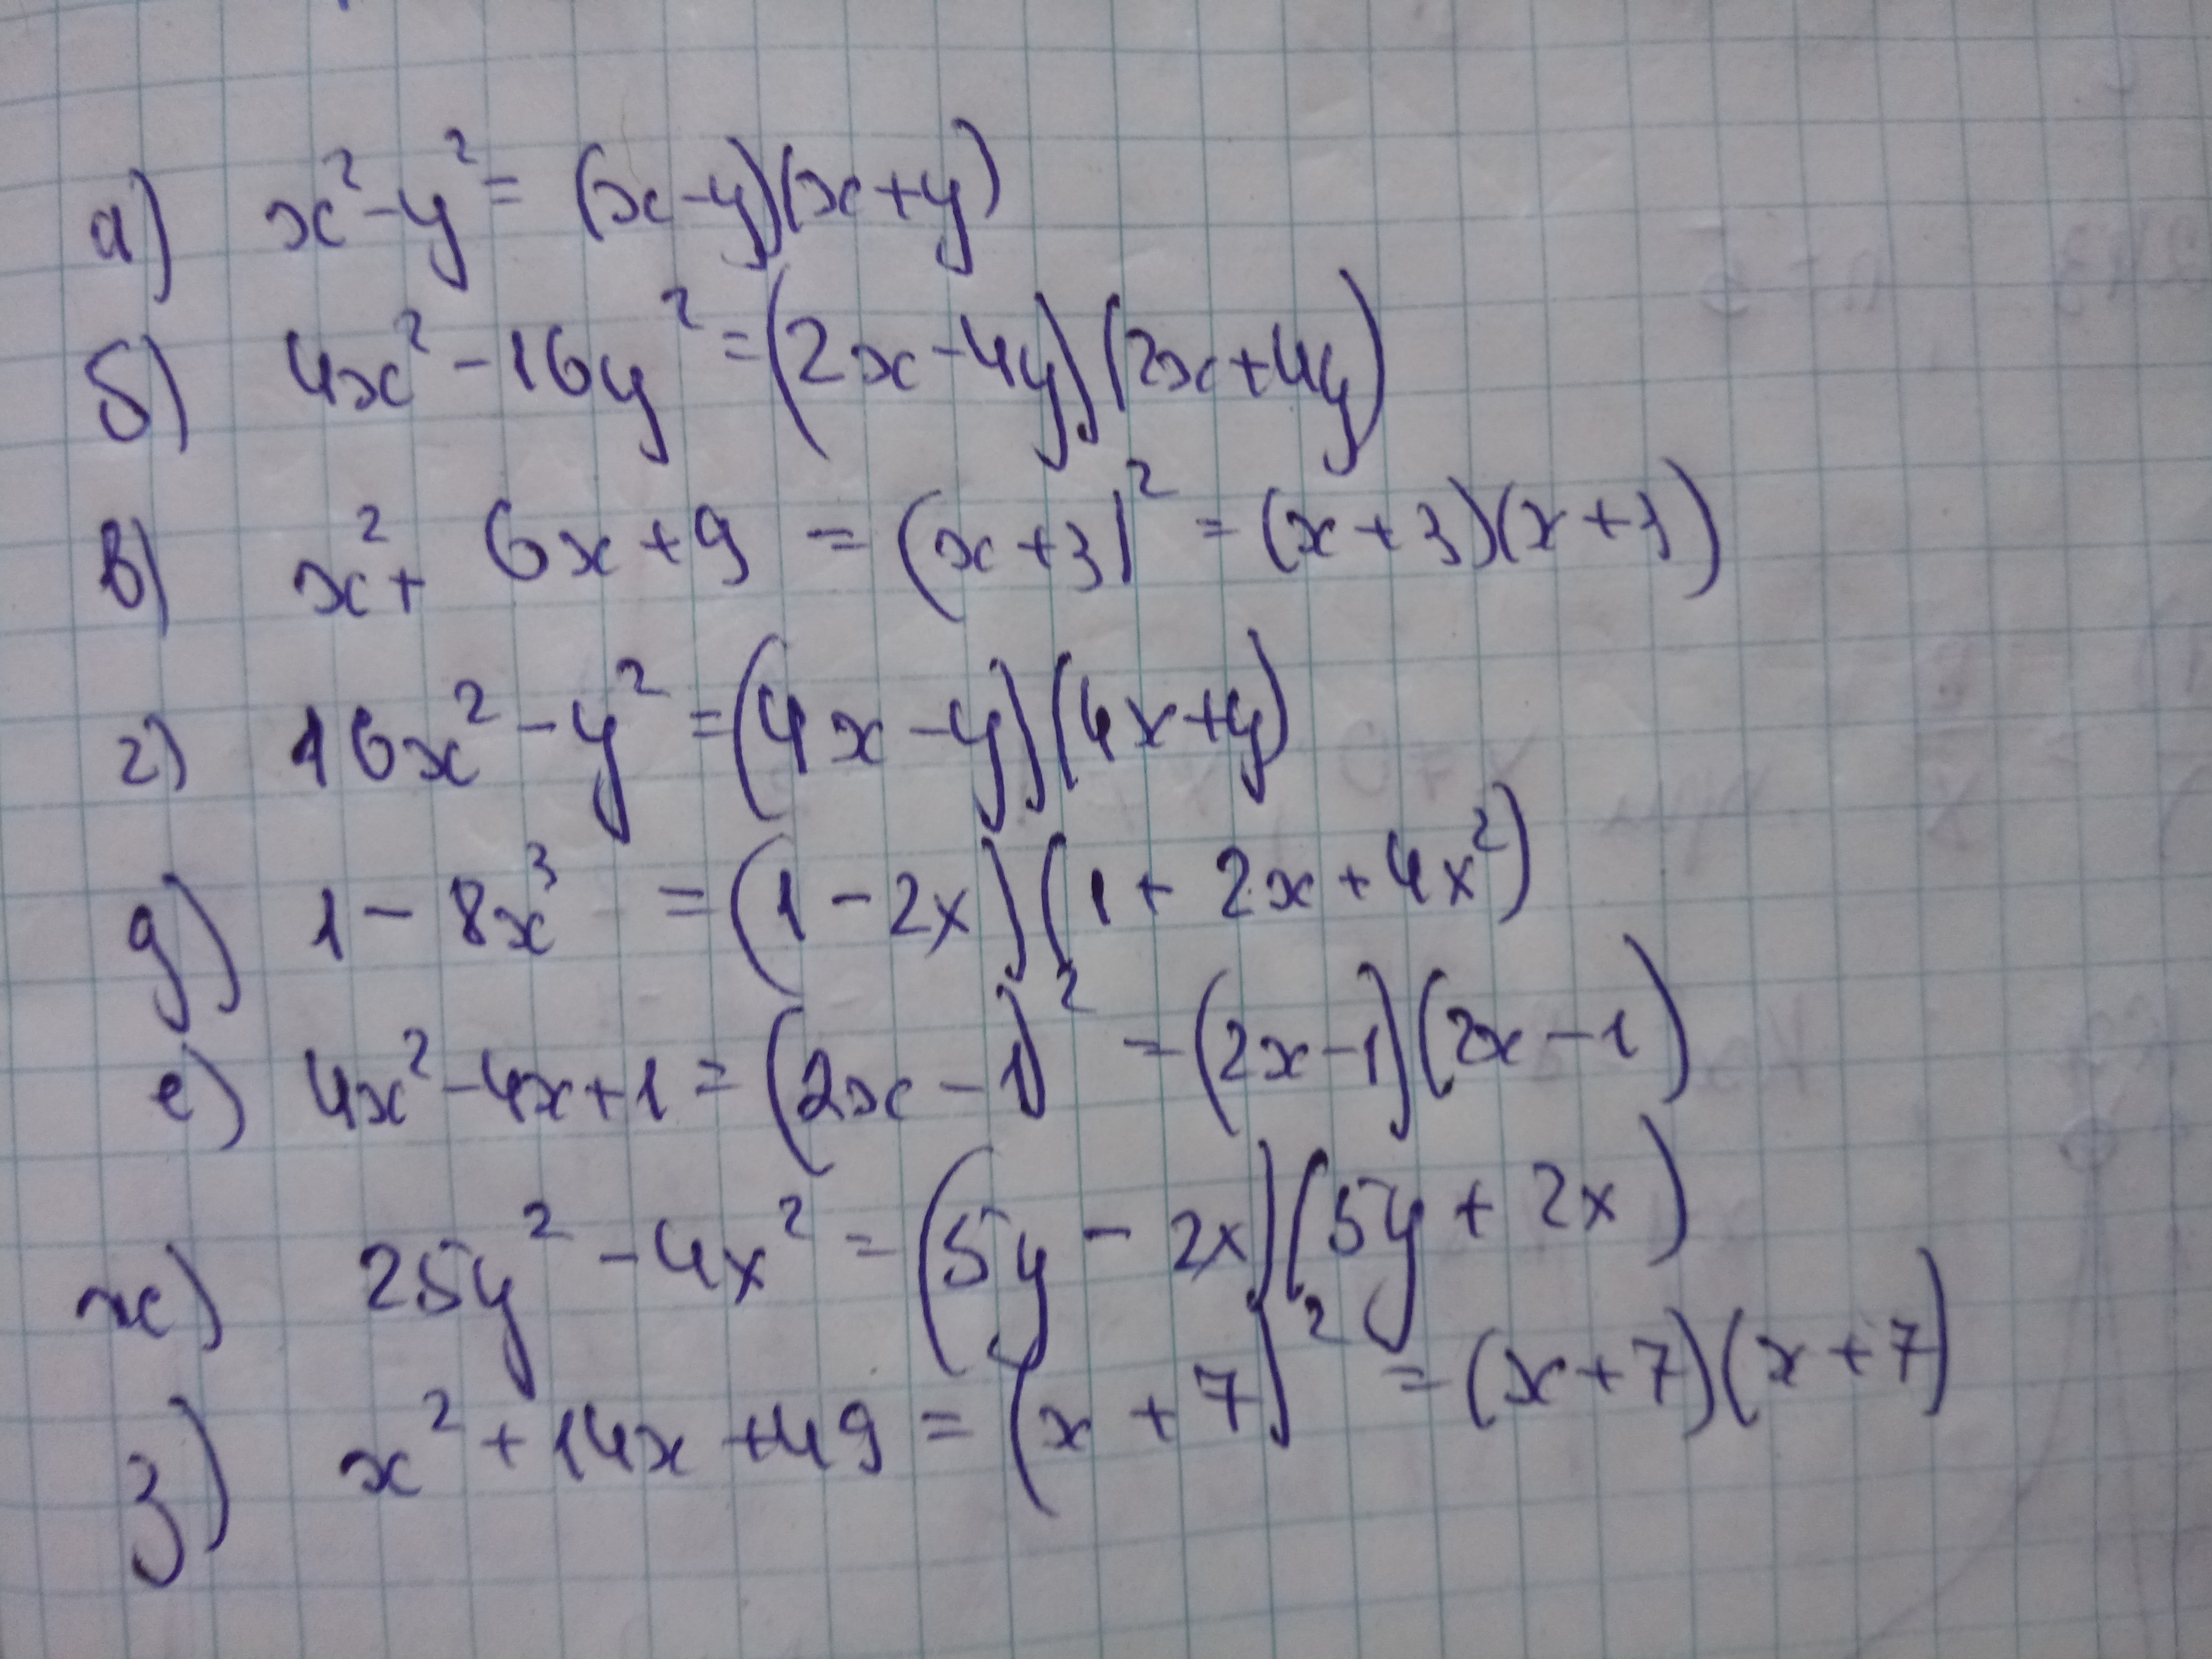 а) x² - y² = (x - y)(x + y)
б) 4x² - 16y² = (2x - 4y)(2x + 4y)
в) x² + 6x + 9 = (x + 3)² = (x + 3)(x + 3)
г) 16x² - y² = (4x - y)(4x + y)
д) 1 - 8x³ = (1 - 2x)(1 + 2x + 4x²)
е) 4x² - 4x + 1 = (2x - 1)² = (2x - 1)(2x - 1)
ж) 25y² - 4x² = (5y - 2x)(5y + 2x)
з) x² + 14x + 49 = (x + 7)² = (x + 7)(x + 7)